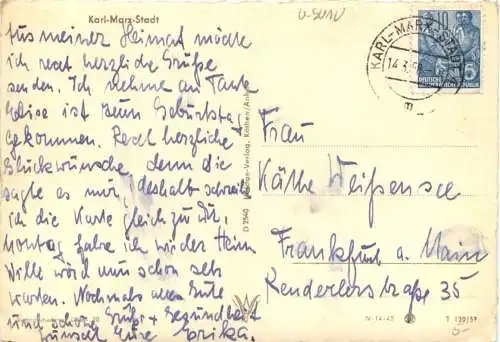 Karl-Marx-Stadt
Aus meiner Heimat möchte
ich recht herzliche Grüße
senden. Ich nehme an Tante
Elise ist zum Geburtstag
gekommen. Recht herzliche
Glückwünsche, denn die
sagte es mir, deshalb schreib
ich die Karte gleich zu dir.
Montag fahre ich wieder Heim
Wille wird nun schon sehr
warten. Nochmals alles Gute
und schöne Grüße + Gesundheit
wünscht Eure Erika.
KARL-MARX-STADT
10
DEUTSCHE
Frau
Käthe Weißensee
Frankfurt a. Main
Rendelerstraße 35
IV-14-45